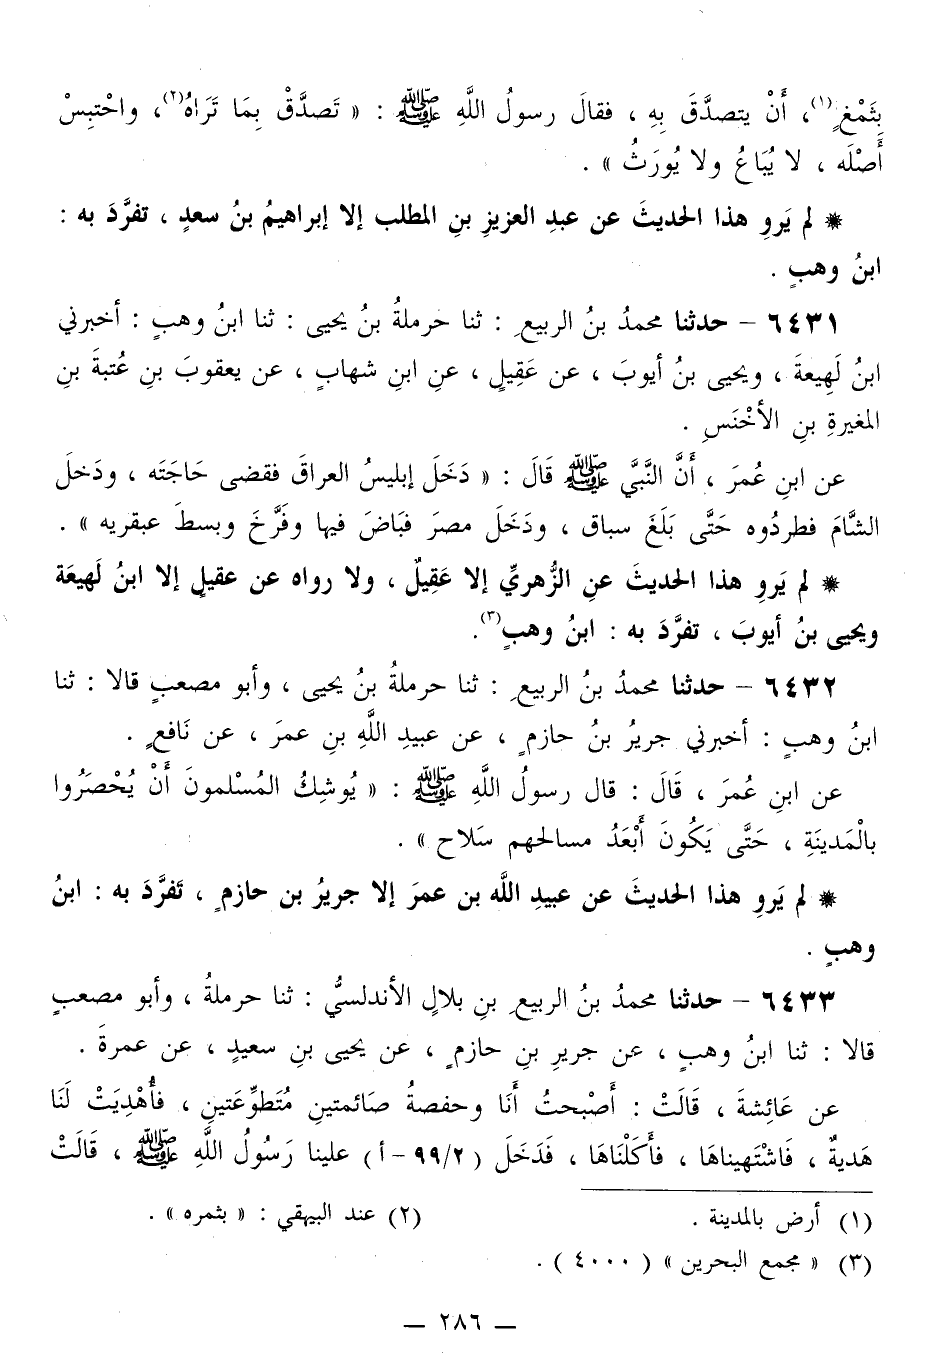 بِثَمْغٍ(١)، أَنْ يتصدَّقَ بِهِ ، فقالَ رسولُ اللَّهِ ﷺ : « تَصدَّقْ بِمَا تَرَاهُ(٢)، واحْتبِسْ
أَصْلَه ، لا يُبَاعُ ولا يُورَثُ » .
* لم يَروِ هذا الحديثَ عن عبدِ العزيزِ بنِ المطلب إلا إبراهيمُ بنُ سعدٍ ، تفرَّدَ به :
ابنُ وهبٍ .
٦٤٣١ – حدثنا محمدُ بنُ الربيعِ : ثنا حرملةُ بنُ يحيى : ثنا ابنُ وهبٍ : أخبرني
ابنُ لَهِيعةَ ، ويحيى بنُ أيوبَ ، عن عَقِيلٍ ، عنِ ابنِ شهابٍ ، عن يعقوبَ بنِ عُتبةَ بنِ
المغيرةِ بنِ الأخْنَسِ .
عن ابنِ عُمرَ ، أَنَّ النَّبيَّ ﷺ قَالَ : « دَخَلَ إبليسُ العراقَ فقضى حَاجَتَه ، ودَخلَ
الشَّامَ فطردُوه حَتَّى بَلَغَ سباق ، ودَخَلَ مصرَ فبَاضَ فيها وفَرَّخَ وبسطَ عبقريه » .
* لم يَروِ هذا الحديثَ عنِ الزُّهريِّ إلا عَقِيلٌ ، ولا رواه عن عقيلٍ إلا ابنُ لَهيعَة
ويحيى بنُ أيوبَ ، تفرَّدَ به : ابنُ وهبٍ(٣).
٦٤٣٢ – حدثنا محمدُ بنُ الربيعِ : ثنا حرملةُ بنُ يحيى ، وأبو مصعبٍ قالا : ثنا
ابنُ وهبٍ : أخبرني جريرُ بنُ حازمٍ ، عن عبيدِ اللَّهِ بنِ عمرَ ، عن نَافعٍ .
عن ابنِ عُمرَ ، قَالَ : قال رسولُ اللَّهِ ﷺ : « يُوشِكُ المُسْلمونَ أَنْ يُحْصَرُوا
بالْمَدينَةِ ، حَتَّى يَكُونَ أَبْعَدُ مسالحهم سَلاح » .
* لم يَروِ هذا الحديثَ عن عبيدِ اللَّه بن عمرَ إلا جريرُ بن حازمٍ ، تَفرَّدَ به : ابنُ
وهبٍ .
٦٤٣٣ – حدثنا محمدُ بنُ الربيعِ بنِ بلالٍ الأندلسيُّ : ثنا حرملةُ ، وأبو مصعبٍ
قالا : ثنا ابنُ وهبٍ ، عن جريرِ بنِ حازمٍ ، عن يحيى بنِ سعيدٍ ، عن عمرةَ .
عن عَائِشةَ ، قَالَتْ : أَصْبحتُ أَنَا وحفصةُ صَائمتينِ مُتَطوِّعَتينِ ، فأُهْدِيَتْ لَنَا
هَديةٌ ، فَاشْتَهيناهَا ، فأَكَلْنَاهَا ، فَدَخَلَ ( ٩٩/٢ – أ ) علينا رَسُولُ اللَّهِ ﷺ ، قَالَتْ
(١) أرض بالمدينة .
(٢) عند البيهقي : « بثمره » .
(٣) « مجمع البحرين » ( ٤٠٠٠ ) .
– ٢٨٦ –